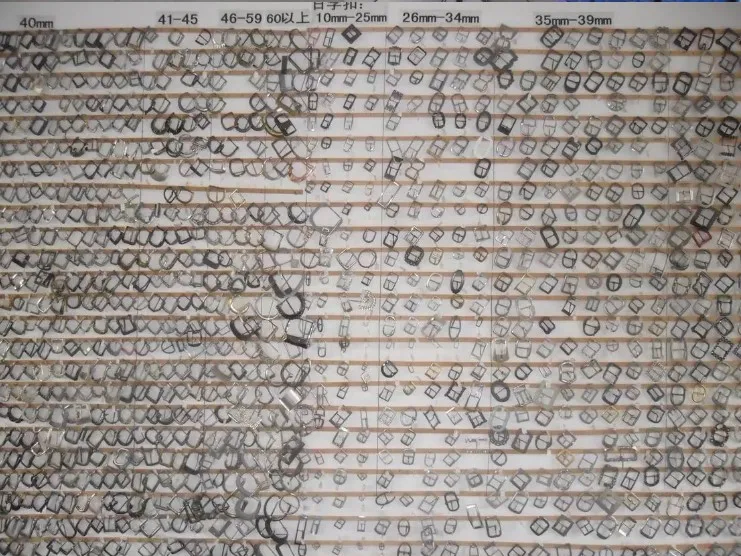 日字扣:
40mm 41-45 46-59 60以上 10mm-25mm 26mm-34mm 35mm-39mm